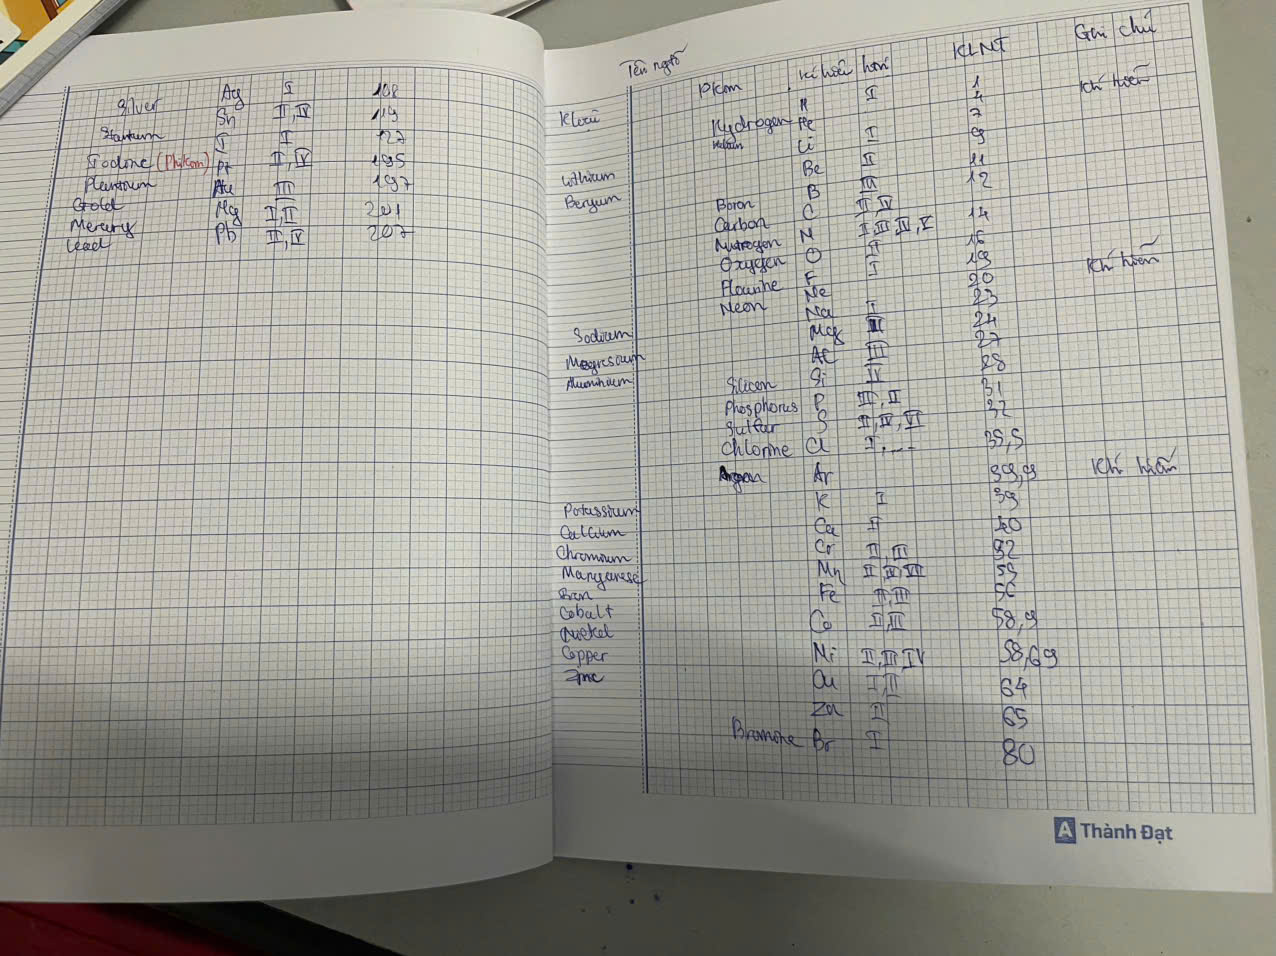 Silver Ag I 108
Stantum Sn II, IV 119
Iodine (Phikom) I I 127
Plantium Pt II, IV 195
Gold Au III 197
Mercury Hg I, II 201
Lead Pb II, IV 207
Tên ngtố
Kloại Pkim Kí hiệu htrị KLNT Ghi chú
Hydrogen H I 1
Helium He 4 Khí hiếm
Lithium Li I 7
Beryum Be II 9
Boron B III 11
Carbon C II, IV 12
Nitrogen N I, III, IV, V 14
Oxygen O II 16
Flourine F I 19
Neon Ne 20 Khí hiếm
Sodium Na I 23
Magresium Mg II 24
Aluminium Al III 27
Silicon Si IV 28
Phosphorus P III, II 31
Sulfur S II, IV, VI 32
Chlorine Cl I,... 35,5
Argon Ar 39,9 Khí hiếm
Potassium K I 39
Calcium Ca II 40
Chromium Cr II, III 52
Manganese Mn II, IV, VII 55
Iron Fe II, III 56
Cobalt Co II, III 58,9
Nickel Ni II, III IV 58,69
Copper Cu I, II 64
Zinc Zn II 65
Bromine Br I 80
A Thành Đạt